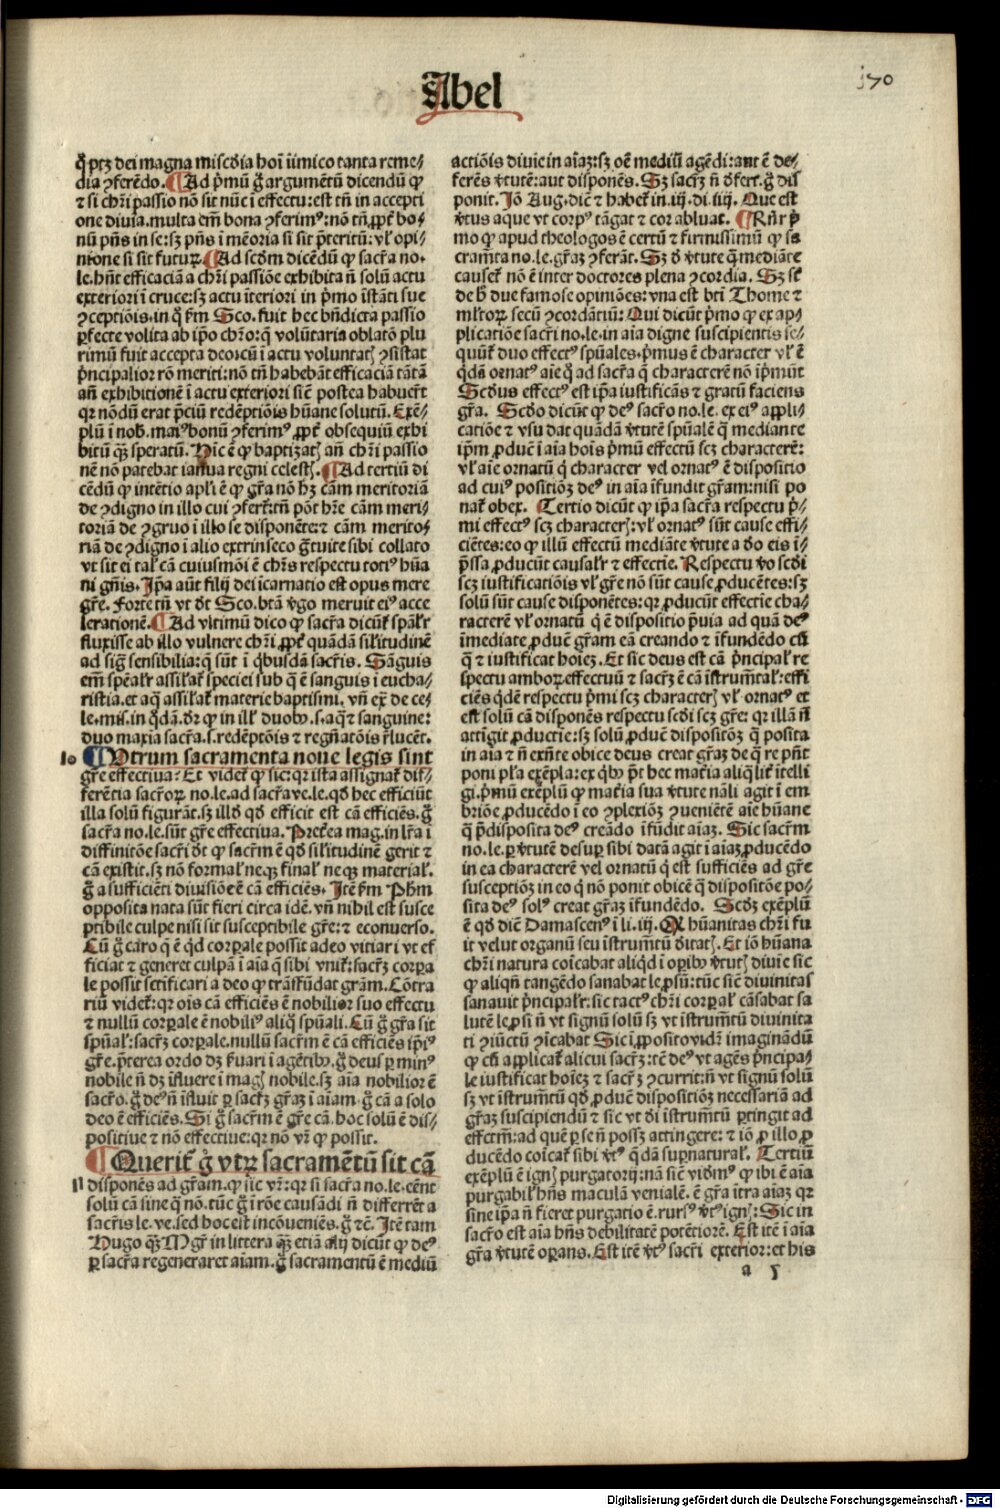 Abel
170
q̃ptꝫ dei magna miscd̕ia hoĩ inimico tanta reme⸗
dia ꝯferẽdo. ¶ Ad p̃mũ g̃ argumẽtũ dicendũ ꝙ
⁊ si ch̕ri passio nõ sit nũc i effectu: est tñ in accepti
one diuina. multa em̃ bona ꝯferimꝰ: nõ tñ ꝓpt̕ bo⸗
nũ pñs in se: sꝫ pñs i mẽoria si sit p̃teritũ: vl̕ opi⸗
nione si sit futuꝝ. ¶ Ad scd̕m dicẽdũ ꝙ sacr̃a no⸗
le. hñt efficaciã a ch̕ri passiõe exhibita ñ solũ actu
exteriori i cruce: sꝫ actu ĩteriori in p̃mo ĩstãti sue
ꝯceptiõis. in q̃ ẜm Sco. fuit hec bñdicta passio
ꝑfecte volita ab ip̃o ch̕ro: q̕ volũtaria oblatõ plu
rimũ fuit accepta deo: cũ i actu voluntatꝭ ꝯsistat
p̕ncipalior rõ meriti: nõ tñ habebãt efficaciã tãtã
añ exhibitionẽ i actu exteriori siẽ postea habuer̃t
qꝛ nõdũ erat p̕ciũ redẽptiõis hũane solutũ. Exẽ⸗
plũ i nob. maiꝰ bonũ ꝯferimꝰ ꝓpt̕ obsequiũ exhi
bitũ qꝫ speratũ. Hic ẽ ꝙ baptizatꝭ añ ch̕ri passio
nẽ nõ patebat ianua regni celestꝭ. ¶ Ad tertiũ di
cẽdũ ꝙ intẽtio apl̕i ẽ ꝙ gr̃a nõ hꝫ cãm meritoriã
de ꝯdigno in illo cui ꝯfert̕: tñ põt hr̃e cãm meri⸗
toriã de ꝯgruo i illo se disponẽte: ⁊ cãm merito⸗
riã de ꝯdigno i alio extrinseco g̃tuite sibi collato
vt sit ei tal̕ cã cuiusmõi ẽ ch̕rs respectu totiꝰ hũa
ni gñis. Ip̃a aũt filij dei icarnatio est opus mere
gr̃e. Forte tñ vt dt̕ Sco. btã v̕go meruit eiꝰ acce
lerationẽ. ¶ Ad vltimũ dico ꝙ sacr̃a dicũt̕ spãl̕r
fluxisse ab illo vulnere ch̕ri ꝓpt̕ quãdã sil̕itudinẽ
ad sig̃ sensibilia: q̃ sũt i q̕busdã sacr̃is. Sãguis
em̃ spẽal̕r assil̕at̕ speciei sub q̃ ẽ sanguis i eucha⸗
ristia. et aq̃ assil̕at̕ materie baptismi. vñ ex̃ de ce⸗
le. mis. in q̃dã. dr̃ ꝙ in ill̕ duobꝰ. s. aq̃ ⁊ sanguine:
duo maxia sacr̃a. s. redẽptõis ⁊ regñatõis r̃lucẽt.
10 ¶ Utrum sacramenta noue legis sint
gr̃e effectiua: Et videt̕ ꝙ sic: qꝛ ista assignat̕ dif⸗
ferẽtia sacr̃oꝝ no. le. ad sacr̃a ve. le. qd̕ hec efficiũt
illa solũ figurãt. sꝫ illd̕ qd̕ efficit est cã efficiẽs. g̃
sacr̃a no. le. sũt gr̃e effectiua. Preterea mag. in lr̃a i
diffinitõe sacr̃i dt̕ ꝙ sacr̃m ẽ qd̕ sil̕itudinẽ gerit ⁊
cã existit. sꝫ nõ formal̕ neqꝫ final̕ neqꝫ material̕.
g̃ a sufficiẽti diuisiõe ẽ cã efficiẽs. Itẽ ẜm Ph̃m
opposita nata sũt fieri circa idẽ. vñ nihil est susce
ptibile culpe nisi sit susceptibile gr̃e: ⁊ econuerso.
Cũ g̃ caro q̃ ẽ q̕d corꝑale possit adeo vitiari vt ef
ficiat ⁊ generet culpã i aĩa q̃ sibi vnit̕: sacr̃ꝫ corꝑa
le possit sctificari a deo ꝙ trãsfũdat gr̃am. Cõtra
riũ videt̕: qꝛ oĩs cã efficiẽs ẽ nobilior suo effectu
⁊ nullũ corꝑale ẽ nobiliꝰ aliq̃ spũali. Cũ g̃ gr̃a sit
spũal̕: sacr̃ꝫ corꝑale. nullũ sacr̃m ẽ cã efficiẽs ip̃iꝰ
gr̃e. p̃terea ordo dꝫ ẜuari i agẽtibꝰ. g̃ deus ꝑ minꝰ
nobile ñ dꝫ ĩfluere i magꝭ nobile. sꝫ aĩa nobilior ẽ
sacr̃o. g̃ deꝰ ñ ĩfluit ꝑ sacr̃ꝫ gr̃aꝫ i aĩam. g̃ cã a solo
deo ẽ efficiẽs. Si g̃ sacr̃m ẽ gr̃e cã. hoc solũ ẽ dis⸗
positiue ⁊ nõ effectiue: qꝛ nõ vr̃ ꝙ possit.
¶ Querit̕ g̃ vtꝝ sacramẽtũ sit cã
11 disponẽs ad gr̃am. ꝙ sic vr̃: qꝛ si sacr̃a no. le. cẽnt
solũ cã sine q̃ nõ. tũc g̃ i rõe causãdi ñ differrẽt a
sacr̃is le. ve. sed hoc est incõueniẽs. g̃ ⁊c̃. Itẽ tam
Hugo qꝫ Mgr̃ in littera qꝫ etiã alij dicũt ꝙ deꝰ
ꝑ sacr̃a regeneraret aĩam. g̃ sacramentũ ẽ mediũ
actiõis diuine in aĩaꝫ: sꝫ oẽ mediũ agẽdi: aut ẽ de⸗
ferẽs v̕tutẽ: aut disponẽs. Sꝫ sacr̃ꝫ ñ d̕fert. g̃ dis
ponit. Iõ Aug. dic̃ ⁊ habet̕ in. iiij. di. iij. Que est
v̕tus aque vt corpꝰ tãgat ⁊ cor abluat. ¶ Rñt̕ p̕
mo ꝙ apud theologos ẽ certũ ⁊ firmissimũ ꝙ sa
cram̃ta no. le. gr̃aꝫ ꝯferãt. Sꝫ d̕ v̕tute q̃ mediãte
causet̕ nõ ẽ inter doctores plena ꝯcordia. Sꝫ st̕
de h̕ due famose opiniões: vna est bt̃i Thome ⁊
ml̕toꝝ secũ ꝯcordãtiũ: Qui dicũt p̕mo ꝙ ex ap⸗
plicatiõe sacr̃i no. le. in aĩa digne suscipientis se⸗
quũt̕ duo effectꝰ spũales. p̕mus ẽ character vl̕ ẽ
q̕dã ornatꝰ aĩe q̃ ad sacr̃a q̃ characterẽ nõ ĩp̕mũt
Scd̕us effectꝰ est ip̃a iustificãs ⁊ gratũ faciens
gr̃a. Scd̕o dicũt ꝙ deꝰ sacr̃o no. le. ex eiꝰ appli⸗
catiõe ⁊ vsu dat quãdã v̕tutẽ spũalẽ q̃ mediante
ip̃m ꝓducẽ i aĩa hoĩs p̕mũ effectũ scꝫ characterẽ:
vl̕ aĩe ornatũ q̃ character vel ornatꝰ ẽ dispositio
ad cuiꝰ positiõꝫ deꝰ in aĩa ĩfundit gr̃am: nisi po
nat̕ obex. Tertio dicũt ꝙ ip̃a sacr̃a respectu p̕⸗
mi effectꝰ scꝫ characterꝭ: vl̕ ornatꝰ sũt cause effi⸗
ciẽtes: eo ꝙ illũ effectũ mediãte v̕tute a d̕o eis ĩ⸗
p̕ssa ꝓducũt causal̕r ⁊ effectie. Respectu v̕o scd̕i
scꝫ iustificatiõis vl̕ gr̃e nõ sũt cause ꝓducẽtes: sꝫ
solũ sũt cause disponẽtes: qꝛ ꝓducũt effectie cha⸗
racterẽ vl̕ ornatũ q̕ ẽ dispositio p̕uia ad quã deꝰ
ĩmediate ꝓducẽ gr̃am eã creando ⁊ ĩfundẽdo cũ
q̃ ⁊ iustificat hoĩeꝫ. Et sic deus est cã p̕ncipal̕ re
spectu amboꝝ effectuũ ⁊ sacr̃ꝫ ẽ cã ĩstrum̃tal̕: effi
ciẽs q̕dẽ respectu p̕mi scꝫ characterꝭ vl̕ ornatꝰ et
est solũ cã disponẽs respectu scd̕i scꝫ gr̃e: qꝛ illã ñ
attigit ꝓductie: sꝫ solũ ꝓducẽ dispositõꝫ q̃ posita
in aĩa ⁊ ñ exñte obice deus creat gr̃aꝫ de q̃ re pñt
poni pl̃a exẽpla: ex q̕bꝰ p̕t hec mat̕ia aliq̃lit̕ ĩtelli
gi. p̕mũ exẽplũ ꝙ mat̕ia sua v̕tute nãli agit i em
briõe ꝓducẽdo i eo ꝯplexiõꝫ ꝯueniẽtẽ aĩe hũane
q̃ p̃disposita deꝰ creãdo ĩfũdit aĩaꝫ. Sic sacr̃m
no. le. ꝑ v̕tutẽ desuꝑ sibi datã agit i aĩaꝫ ꝓducẽdo
in ea characterẽ vel ornatũ q̕ est sufficiẽs ad gr̃e
susceptiõꝫ in eo q̕ nõ ponit obicẽ q̃ dispositõe po⸗
sita deꝰ solꝰ creat gr̃aꝫ ĩfundẽdo. Scd̕ꝫ exẽplũ
ẽ qd̕ dic̃ Damascenꝰ i li. iij. Qꝛ hũanitas ch̕ri fu
it velut organũ seu ĩstrum̃tũ d̕itatꝭ. Et iõ hũana
ch̕ri natura coĩcabat aliq̕d i oꝑibꝰ v̕tutꝭ diuie sic
ꝙ aliqñ tangẽdo sanabat leꝓsũ: tũc siẽ diuinitas
sanauit p̕ncipal̕r: sic tactꝰ ch̕ri corꝑal̕ cãsabat sa
lutẽ leꝓsi ñ vt signũ solũ sꝫ vt ĩstrum̃tũ diuinita
ti ꝯiũctũ ꝯĩcabat Sic i ꝓposito vidr̃ imaginãdũ
ꝙ cũ applicat̕ alicui sacr̃ꝫ: tẽ deꝰ vt agẽs p̕ncipa⸗
le iustificat hoĩeꝫ ⁊ sacr̃ꝫ ꝯcurrit: ñ vt signũ solũ
sꝫ vt ĩstrum̃tũ qd̕ ꝓducẽ dispositiõꝫ necessariã ad
gr̃aꝫ suscipiendũ ⁊ sic vt d̕i ĩstrum̃tũ ꝑtingit ad
effectm̃: ad quẽ ꝑ se ñ possꝫ attingere: ⁊ iõ ꝓ illo ꝓ
ducẽdo coĩcat̕ sibi v̕tꝰ q̃dã suꝑnatural̕. Tertiũ
exẽplũ ẽ ignꝭ purgatorij: na siẽ vidm̃ꝰ ꝙ ibi ẽ aĩa
purgabil̕ hñs maculã venialẽ. ẽ gr̃a ĩtra aĩaꝫ qꝛ
sine ip̃a ñ fieret purgatio ẽ. rursꝰ v̕tꝰ ignꝭ: Sic in
sacr̃o est aĩa hñs debilitatẽ potẽtiorẽ. Est itẽ i aĩa
gr̃a v̕tutẽ oꝑans. Est itẽ v̕tꝰ sacr̃i exterior: et his
a 5
Digitalisierung gefördert durch die Deutsche Forschungsgemeinschaft - DFG